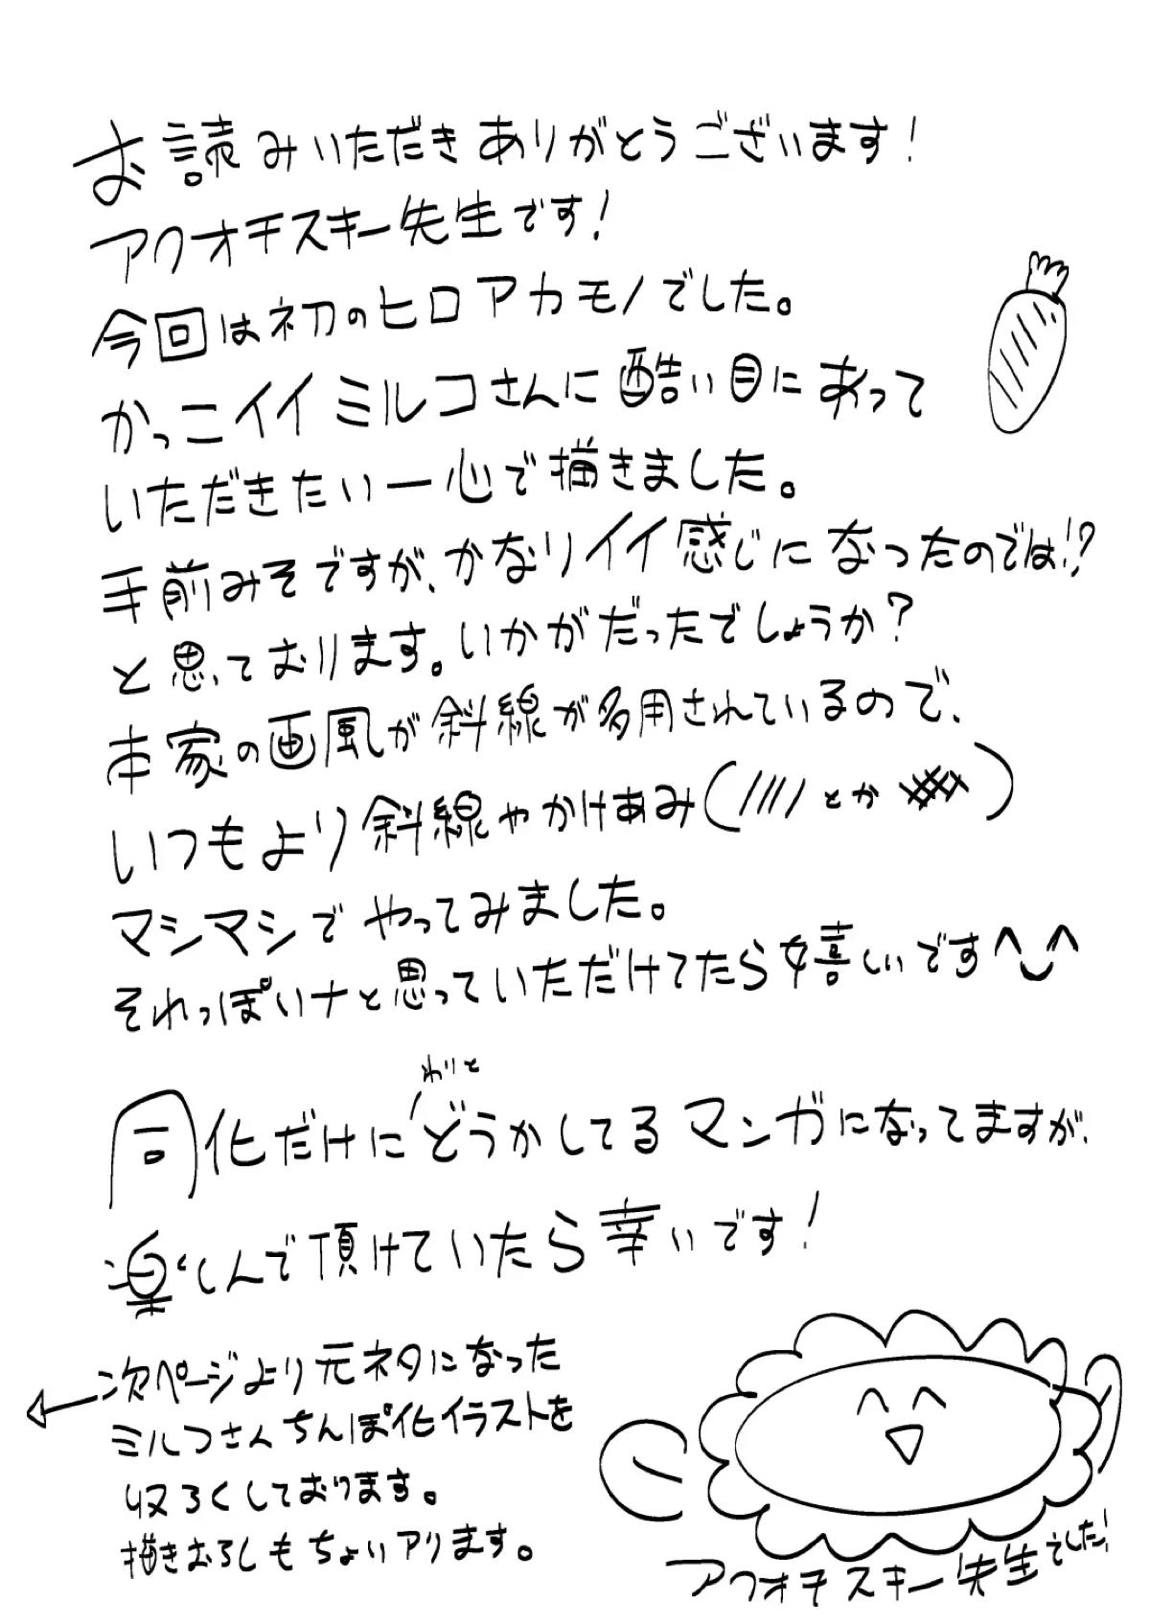 お読みいただきありがとうございます!
アクオチスキー先生です!
今回は初のヒロアカモノでした。
かっこイイミルコさんに酷い目にあって
いただきたい一心で描きました。
手前みそですが、かなりイイ感じになったのでは!?
と思っております。いかがだったでしょうか?
本家の画風が斜線が多用されているので、
いつもより斜線やかけあみ(////とか)
マシマシでやってみました。
それっぽいナと思っていただけてたら嬉しいです^^
わりと
同化だけにどうかしてるマンガになってますが、
楽しんで頂けていたら幸いです!
次ページより元ネタになった
ミルコさんちんぽ化イラストを
収ろくしております。
描きおろしもちょいアります。
アクオチスキー先生でした!